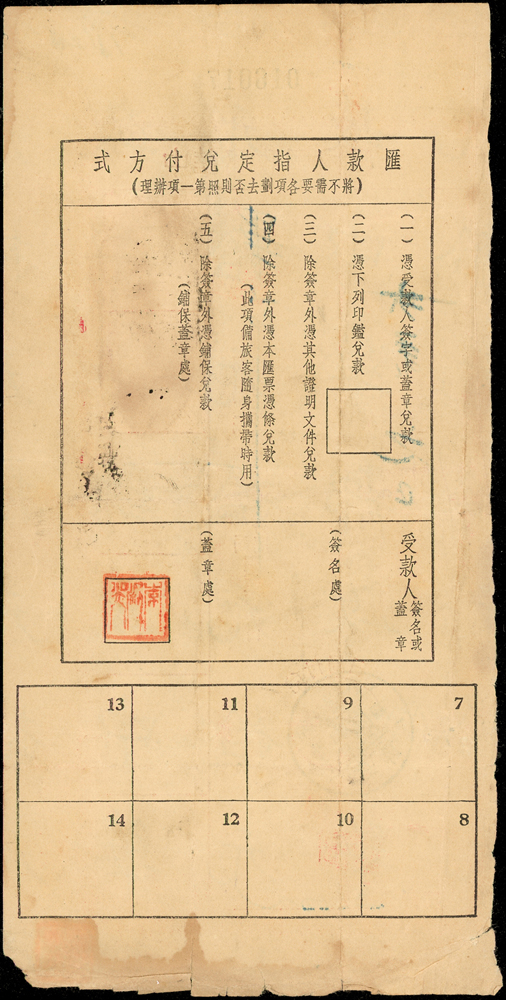 匯款人指定兌付方式
(將不需要各項劃去否則照第一項辦理)
(一) 憑受款人簽字或蓋章兌款
(二) 憑下列印鑑兌款
(三) 除簽章外憑其他證明文件兌款
(四) 除簽章外憑本匯票憑條兌款
(此項備旅客隨身攜帶時用)
(五) 除簽章外憑鋪保兌款
(鋪保蓋章處)
受款人 簽名或蓋章
(簽名處)
(蓋章處)
7
9
11
13
8
10
12
14